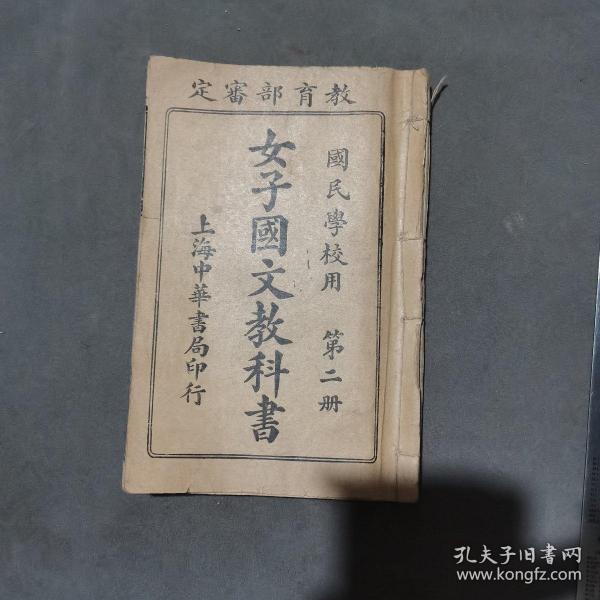 教育部審定
國民學校用 第二册
女子國文教科書
上海中華書局印行
孔夫子旧书网
www.kongfz.com